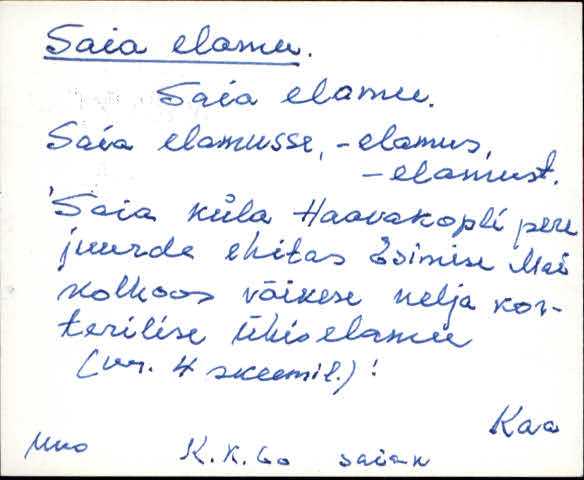 Saia elamu.
Saia elamu.
Saia elamusse, -elamus,
-elamust.
'Saia küla Haavakopli pere
juurde ehitas Esimise Mai
kolhoos väikese nelja kor-
terilise ühiselamu
(nr. 4 skeemil.)'
Kaa
K.K. 60